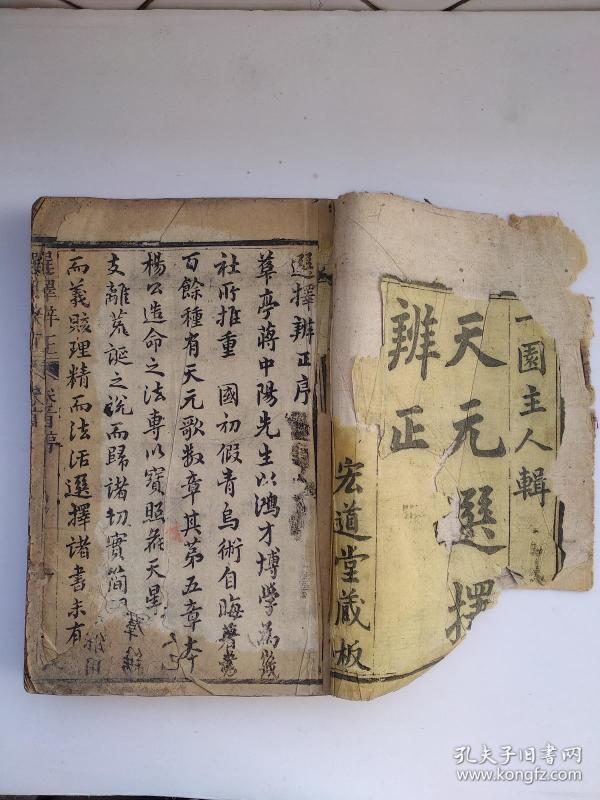 一園主人輯
天元選擇
辨正
宏道堂藏板
選擇辨正序
華亭蔣中陽先生以鴻才博學為幾
社所推重　國初假青烏術自晦著書
百餘種有天元歌數章其第五章本
楊公造命之法專以寶照葬天星
支離荒謬之說而歸諸切實簡
而義賅理精而法活選擇諸書未有
選擇辨正
卷首序
孔夫子旧书网
www.kongfz.com